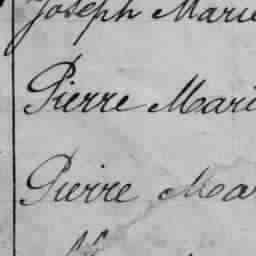 Joseph Marie
Pierre Mari
Pierre Ma